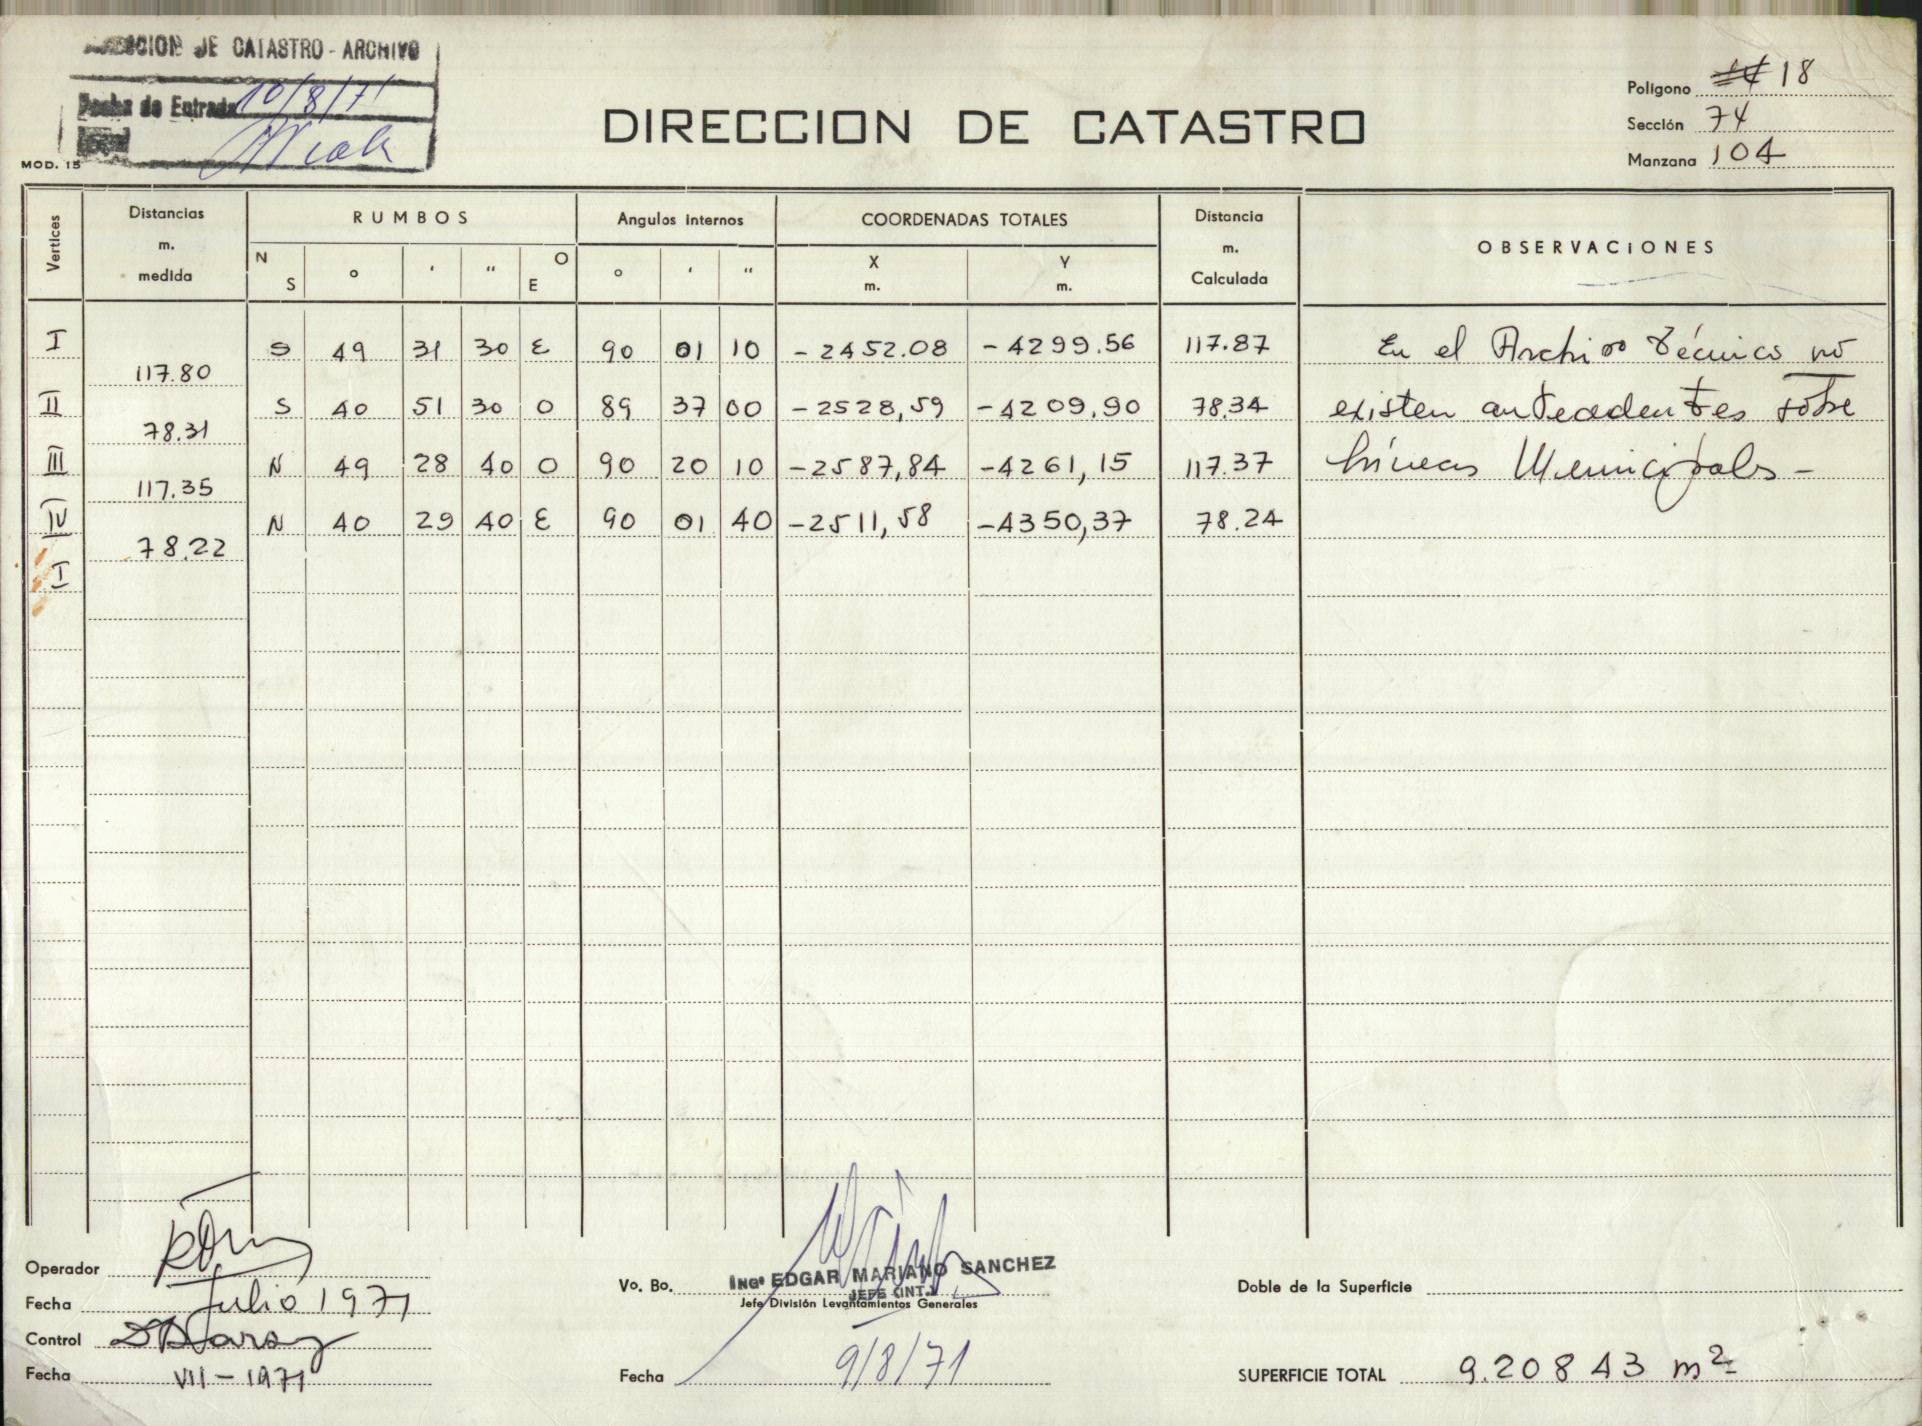 DIRECCION DE CATASTRO - ARCHIVO
Fecha de Entrada 10/8/71
MOD. 15
DIRECCION DE CATASTRO
Polígono 18
Sección 74
Manzana 104
Vertices
Distancias m. medida
RUMBOS
N S o ' " O E
Angulos internos
o ' "
COORDENADAS TOTALES
X m.
Y m.
Distancia m. Calculada
OBSERVACIONES
I S 49 31 30 E 90 01 10 -2452.08 -4299.56 117.87 En el Archivo Técnico no
117.80
II S 40 51 30 O 89 37 00 -2528,59 -4209,90 78.34 existen antecedentes sobre
78.31
III N 49 28 40 O 90 20 10 -2587,84 -4261,15 117.37 Líneas Municipales -
117.35
IV N 40 29 40 E 90 01 40 -2511,58 -4350,37 78.24
78.22
I
Operador
Fecha Julio 1971
Control
Fecha VII - 1971
Vo. Bo. Ingº EDGAR MARIANO SANCHEZ
JEFE (INT.)
Jefe División Levantamientos Generales
Fecha 9/8/71
Doble de la Superficie
SUPERFICIE TOTAL 9.208 43 m2